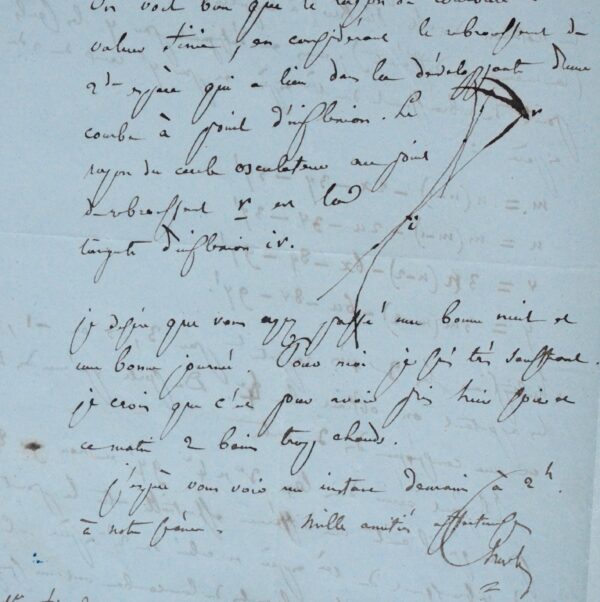 On voit bien que le rayon de courbure
valeur finie, en considérant le rebroussement de
2de espèce qui a lieu dans la développante d'une
courbe à point d'inflexion. Le
rayon du cercle osculateur au point
de rebroussement r est la
tangente d'inflexion ir.
r
i
je désire que vous ayez passé une bonne nuit et
une bonne journée. Pour moi je suis très souffrant.
je crois que c'est pour avoir pris hier soir et
ce matin 2 bains trop chauds.
j'espère vous voir un instant demain à 2h.
à notre séance. Mille amitiés affectueuses